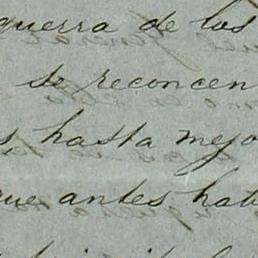 guerra de los
se reconcen
s hasta mejo
que antes hab